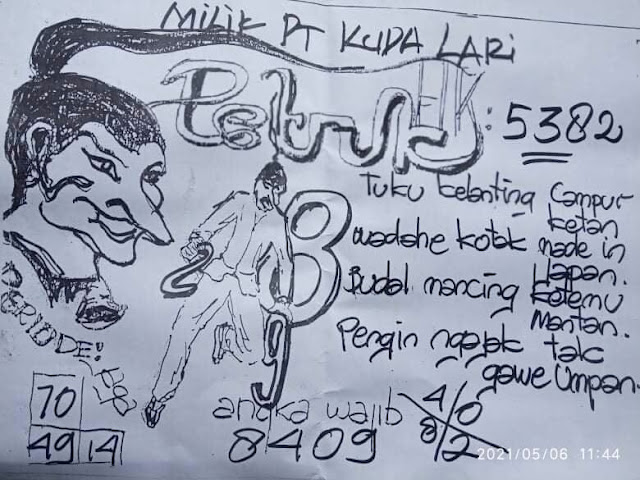 MILIK PT KUDA LARI
Petruk : 5382
Tuku kelanting Campur
ketan
wadahe kotak made in
Japan.
Budal mancing Ketemu
Mantan.
Pengin ngajak tak
gawe Umpan.
2 8
9
PERIODE:
70
49 14
angka wajib
8409
4 0
8 2
2021/05/06 11:44